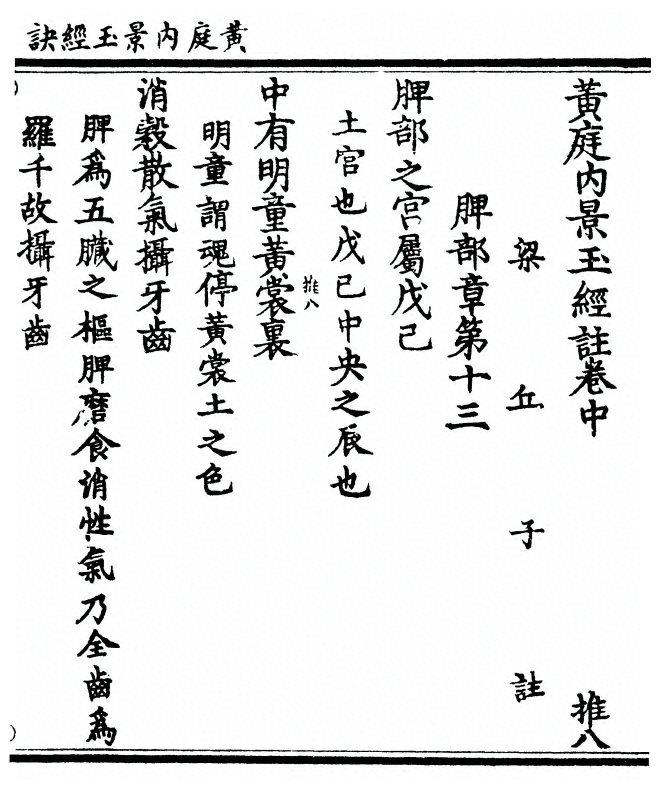 黃庭內景玉經訣
黃庭內景玉經註卷中 推八
梁丘子註
脾部章第十三
脾部之宮屬戊己
土宮也戊己中央之辰也
中有明童黃裳裏
推八
明童謂魂停黃裳土之色
消穀散氣攝牙齒
脾爲五臟之樞脾磨食消性氣乃全齒爲
羅千故攝牙齒